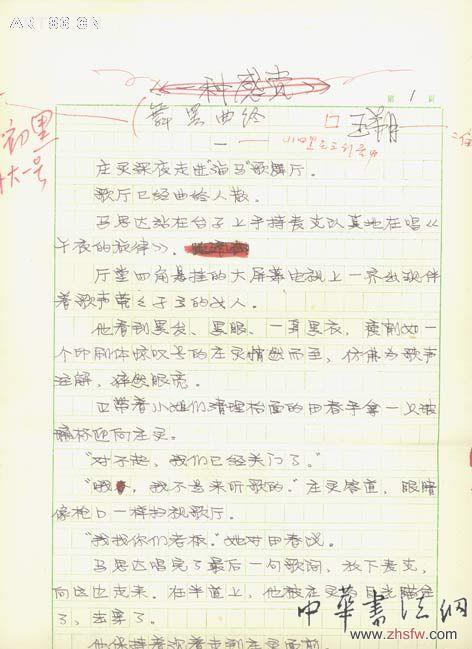 ART86.CN
一种感觉
第1页
舞罢曲终
口 王朔
初黑
大一号
庄灵深夜走进"海马"歌舞厅。
歌厅已经曲终人散。
马思达站在台子上手持麦克认真地在唱《
午夜的旋律》。
厅堂四角悬挂的大屏幕电视上一齐出现伴
着歌声带
他看到黑发、黑眼、一身黑衣,瘦削如一
个印刷体惊叹号的庄灵悄然而至,仿佛为歌声
注解,猝然眼亮。
正带着小姐们清理枱面的田春手拿一只玻
璃杯迎向庄灵。
"对不起,我们已经关门了。"
"哦,我不是来听歌的。"庄灵答道,眼睛
像枪口一样扫视歌厅。
"我找你们老板。"她对田春说。
马思达唱完了最后一句歌词,放下麦克,
向这边走来。在半道上,他被庄灵的目光瞄住
了,击穿了。
他保持着沉着走到庄灵面前。
中華書法網
www.zhsfw.com